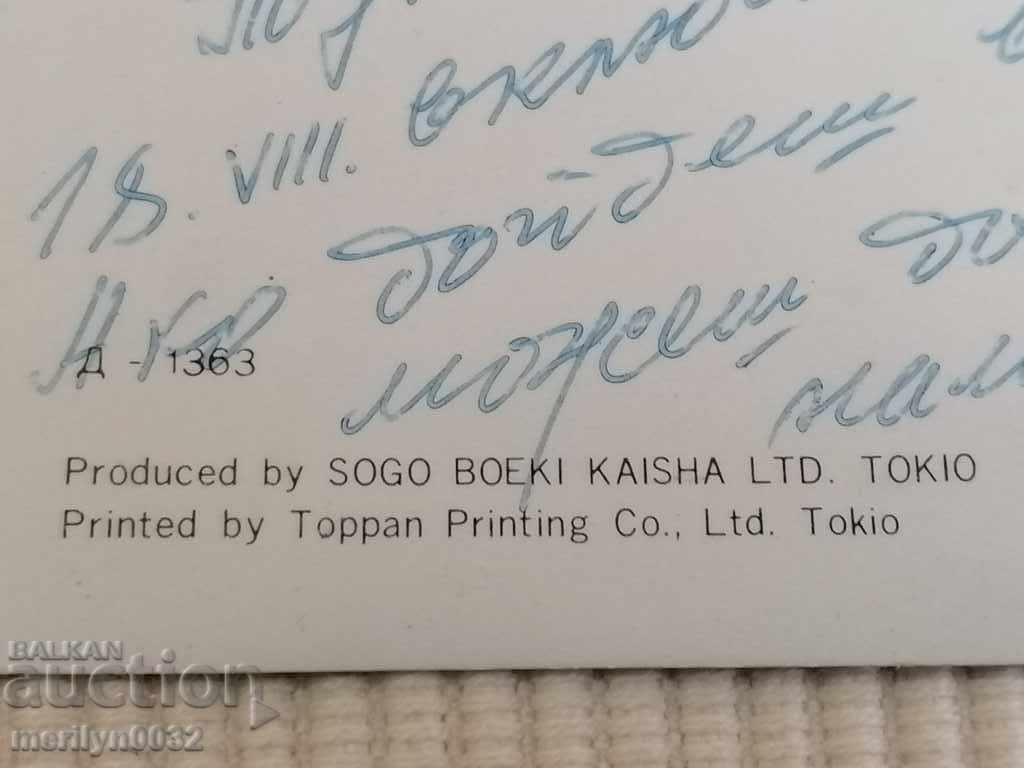 18. VIII. включ
Ако дойдеш
можеш
Д - 1363
Produced by SOGO BOEKI KAISHA LTD. TOKIO
Printed by Toppan Printing Co., Ltd. Tokio
BALKAN
auction
merilyn0032